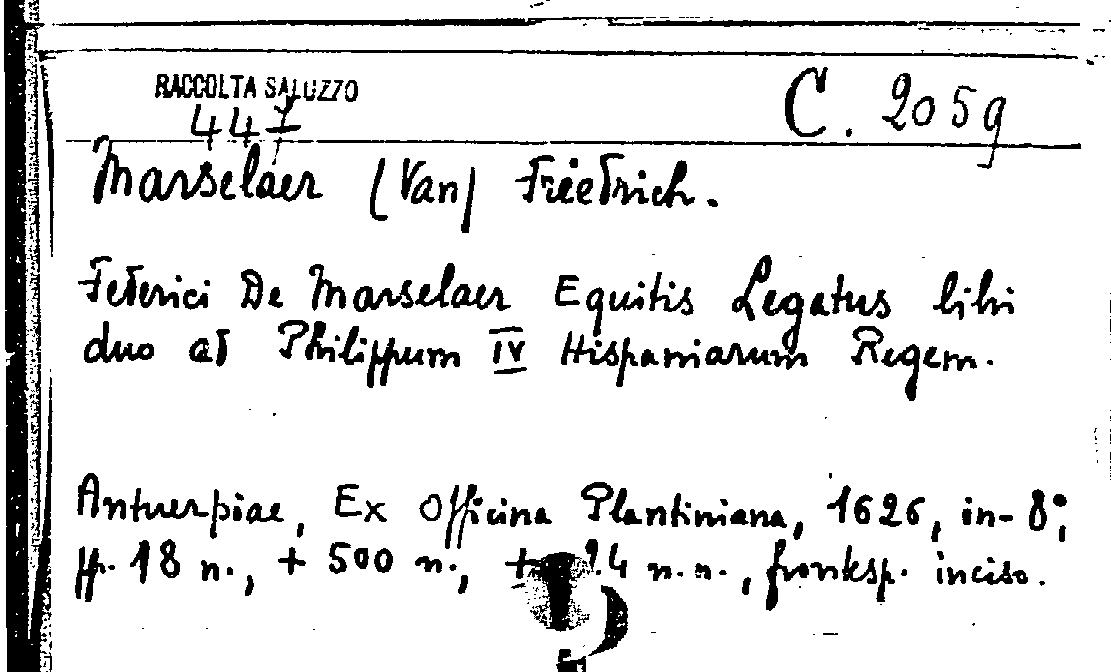 RACCOLTA SALUZZO
44 I
C. 2059
Marselaer (Van) Friedrich.
Federici De Marselaer Equitis Legatus libri
duo ad Philippum IV Hispaniarum Regem.
Antuerpiae, Ex Officina Plantiniana, 1626, in-8°,
pp. 18 n., + 500 n., + 4 n.n., frontesp. inciso.